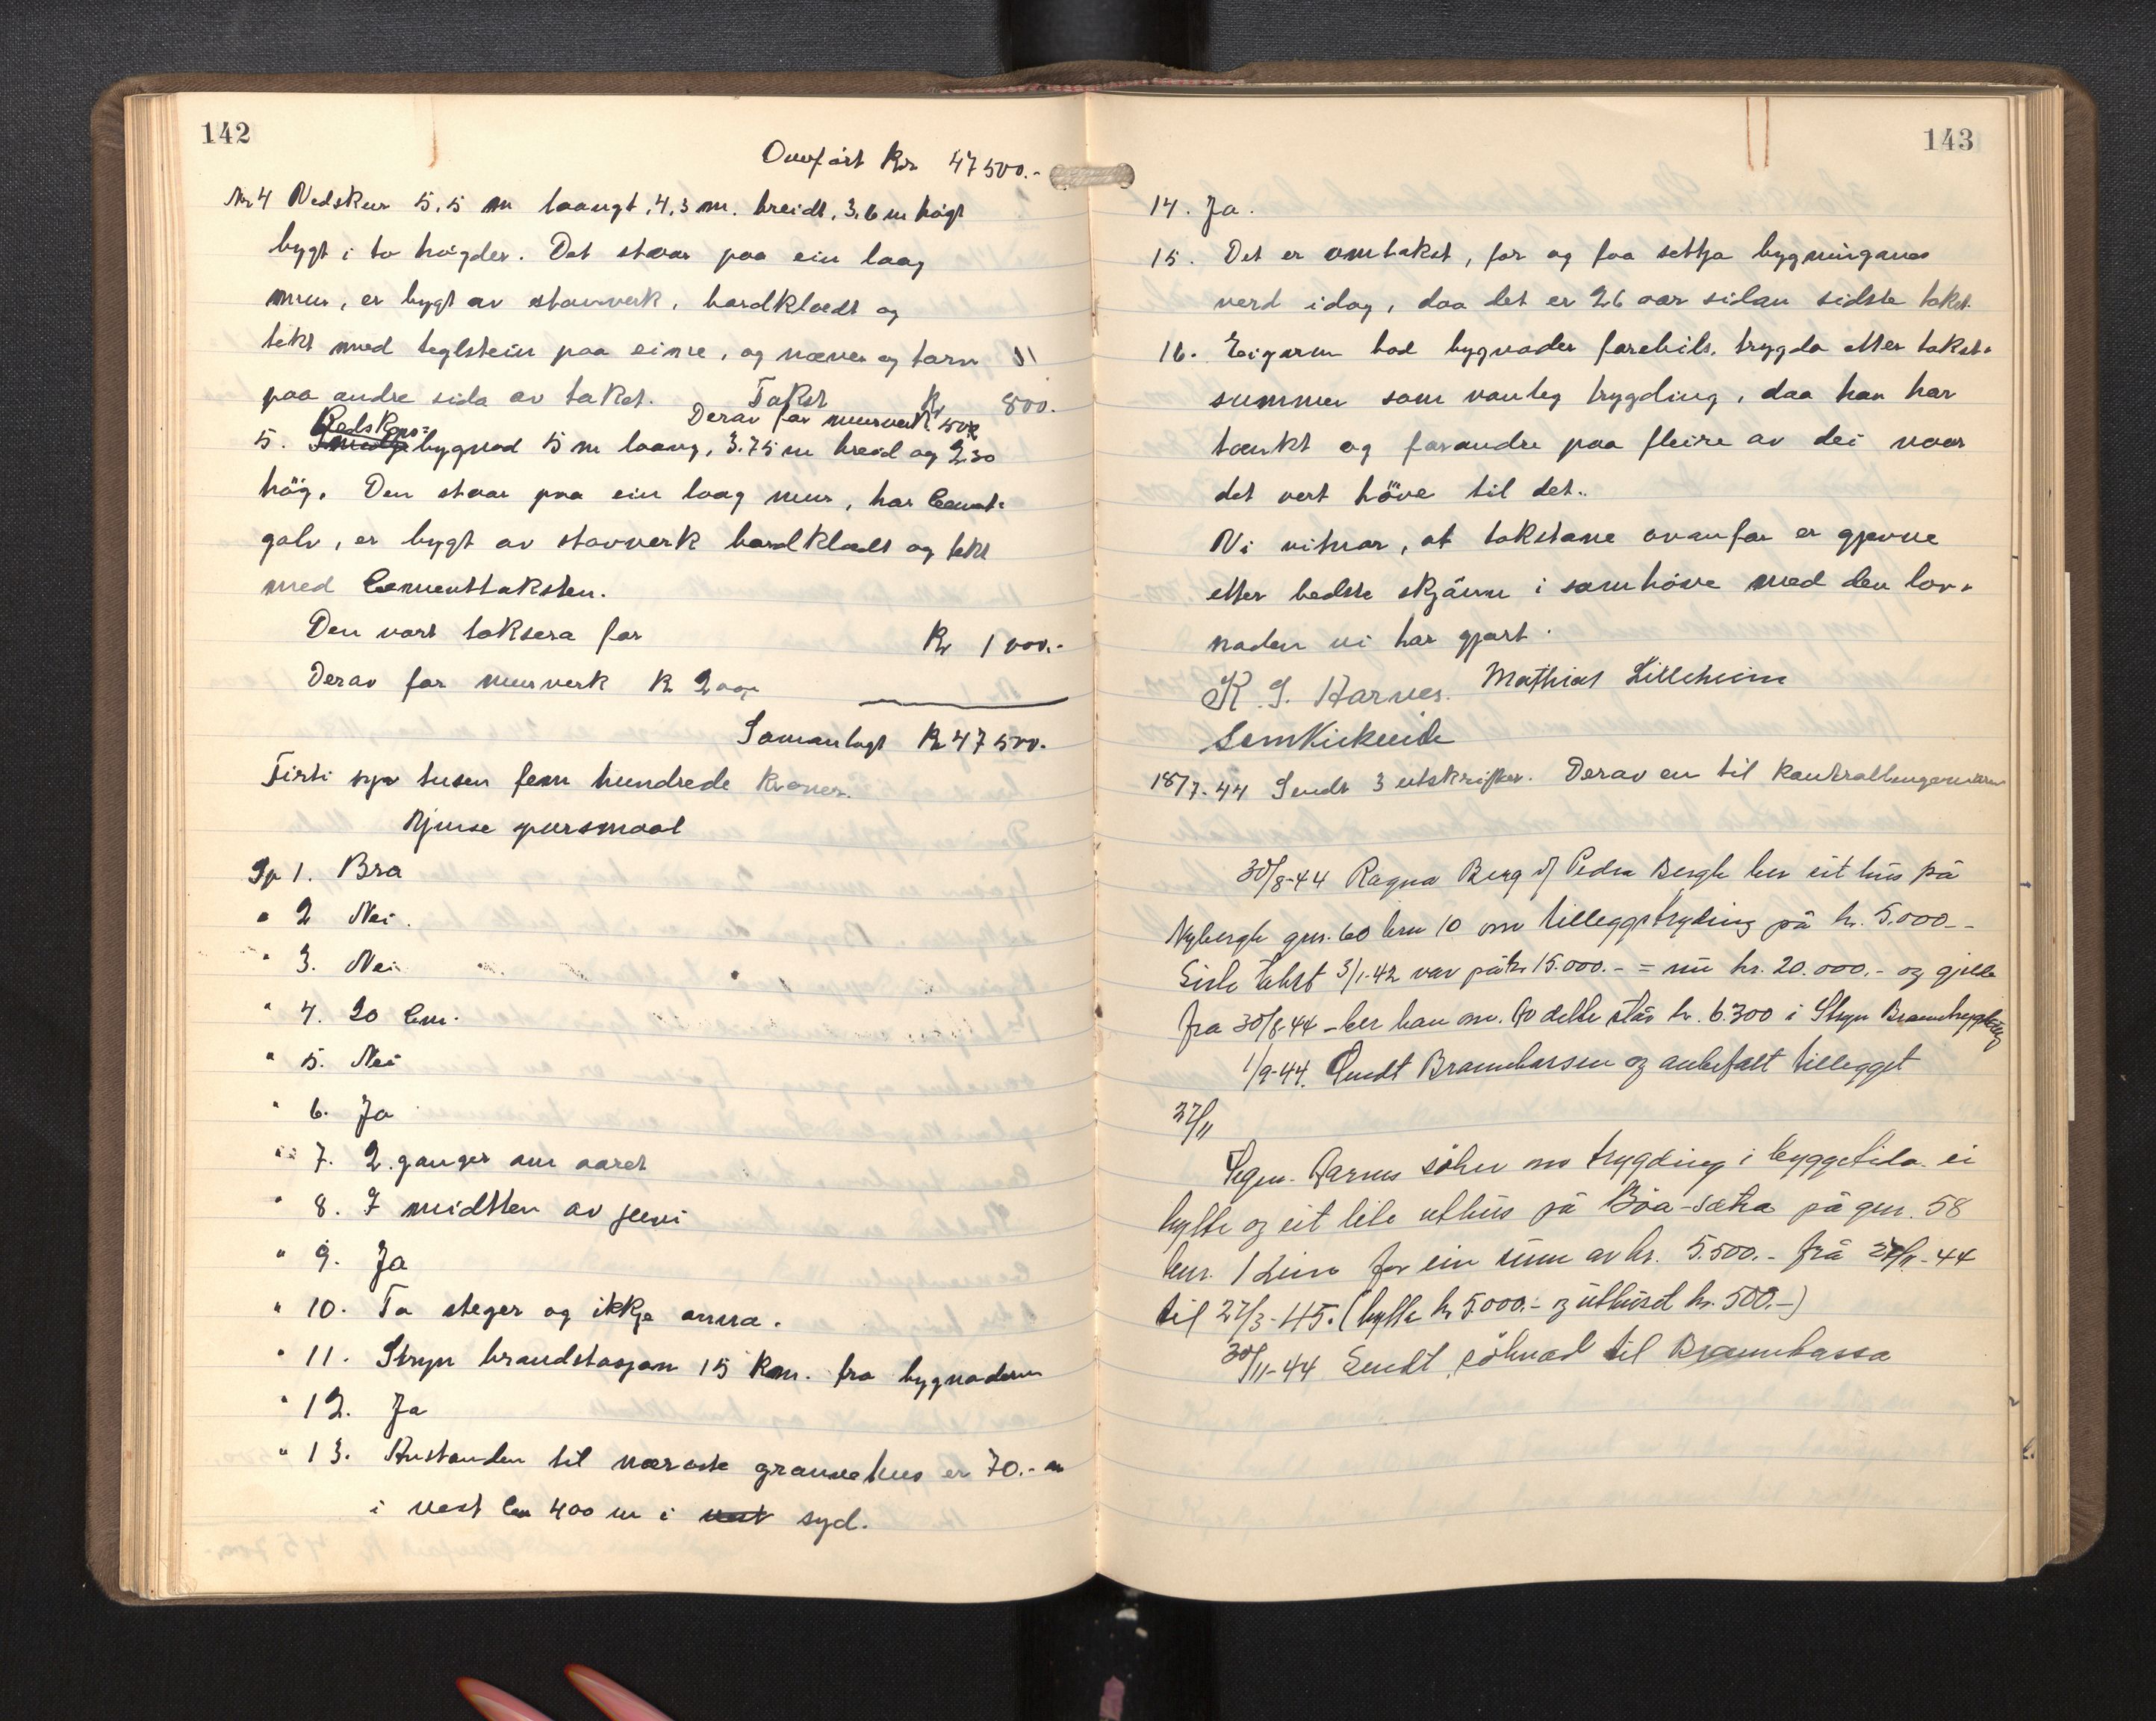 142
Overfört Kr 47500.-
Nr 4 Vedskur 5,5 m laangt, 4,3 m. breidt, 3,6 m högt
bygt i to högder. Det staar paa ein laag
mur, er bygt av stavverk, bordklædt og
tekt med teglstein paa eine, og næver og torv
paa andre sida av taket. Takst Kr 800.
Derav for murverk 50 kr
5. Redskaps= bygnad 5 m laang, 3.75 m breid og 2.30
hög. Den staar paa ein laag mur, har Cement=
golv, er bygt av stavverk bordklædt og tekt
med Cementtaksten.
Den vart taksera for Kr 1000.-
Derav for murverk K 200,-
Samanlagt Kr 47500.-
Firti syv tusen fem hundrede Kroner.
Ymse spursmaal
Sp 1. Bra
" 2 Nei.
" 3. Nei
" 4. 20 Cm.
" 5. Nei
" 6. Ja
" 7. 2 ganger om aaret
" 8. I midtten av
" 9. Ja
" 10. To steger og ikkje anna.
" 11. Stryn brandstasjon 15 Km. fra bygnaden
" 12. Ja
" 13. Avstanden til næraste grannehus er 70.- m
i vest Ca 400 m i vest syd.
143
14. Ja.
15. Det er omtakst, for og faa settja bygninganes
verd idag, daa det er 26 aar sidan sidste takst.
16. Eigaren bad bygnader forebils. trygda etter takst=
summen som vanleg trygding, daa han har
tænkt og forandre paa fleire av dei naar
det vert höve til det.
Vi vitnar, at takstane ovanfor er gjevne
etter bedste skjönn i samhöve med den lov=
naden vi har gjort.
K. S. Harnes. Mathias Lilleheim
18/7-44 Sendt 3 utskrifter. Derav en til
30/8-44 Ragna Berg v/ Peder Bergh ber eit hus på
Nybergh gnr. 60 bnr 10 om tilleggstryding på kr. 5.000.-
Siste takst 3/1-42 var på kr 15.000.- = nu kr. 20.000.- og gjelde
fra 30/8-44 - ber han om. Av dette står kr. 6.300 i Stryn Branntrygdelag
1/9-44. Sendt Brannkassen og anbefalt tillegget
27/11
Harnes söker om trygding i byggetida ei
hytte og eit lite uthus på Böa-sætra på gnr. 58
bnr. 1 for ein sum av kr. 5.500.- frå 27/11-44
til 27/3-45. (hytta kr 5.000.- og uthuset kr. 500.-)
30/11-44 Sendt söknad til Brannkassa